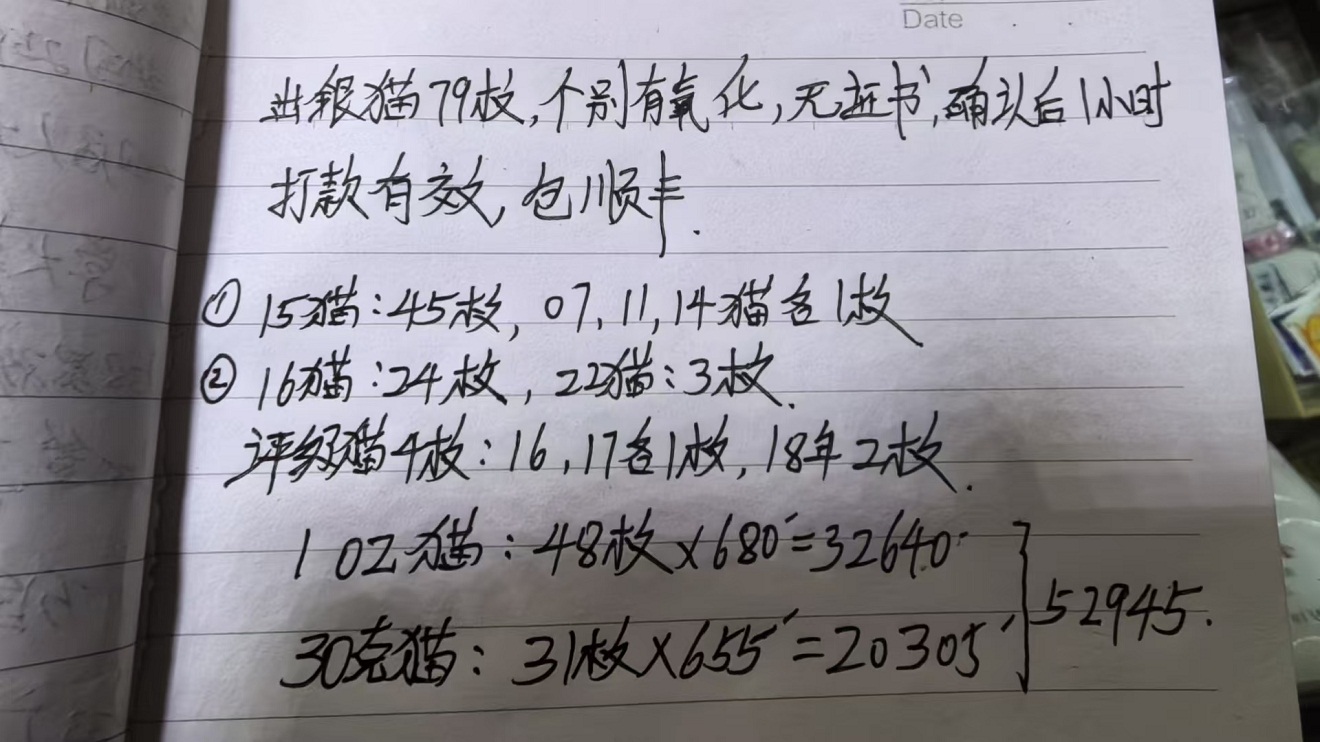 Date
出银猫79枚,个别有氧化,无证书,确认后1小时
打款有效,包顺丰.
① 15猫:45枚,07,11,14猫各1枚
② 16猫:24枚,22猫:3枚.
评级猫4枚:16,17各1枚,18年2枚.
1 OZ猫:48枚×680=32640
30克猫:31枚×655=20305
52945.